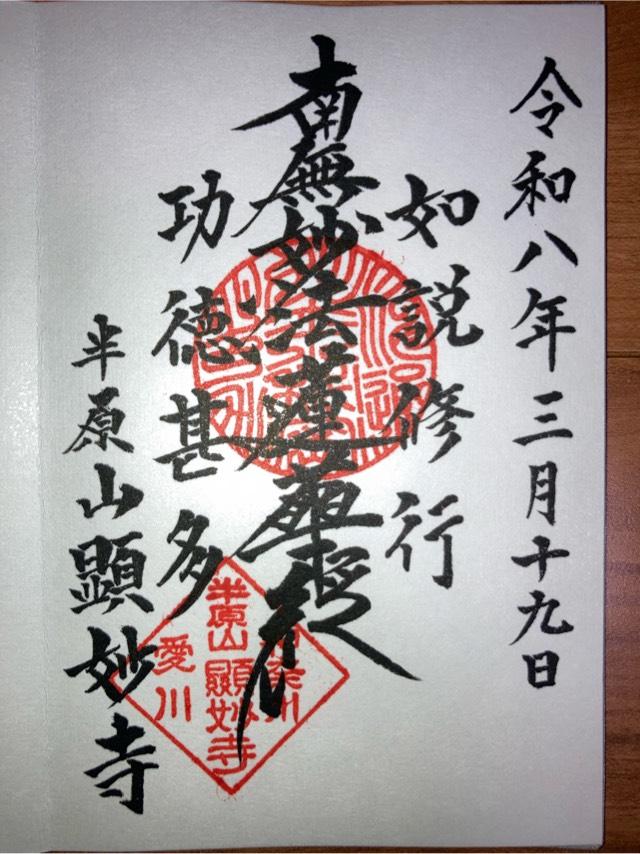 令和八年三月十九日
如説修行
南無妙法蓮華経
功徳甚多
半原山顕妙寺
半原山
顕妙寺
愛川